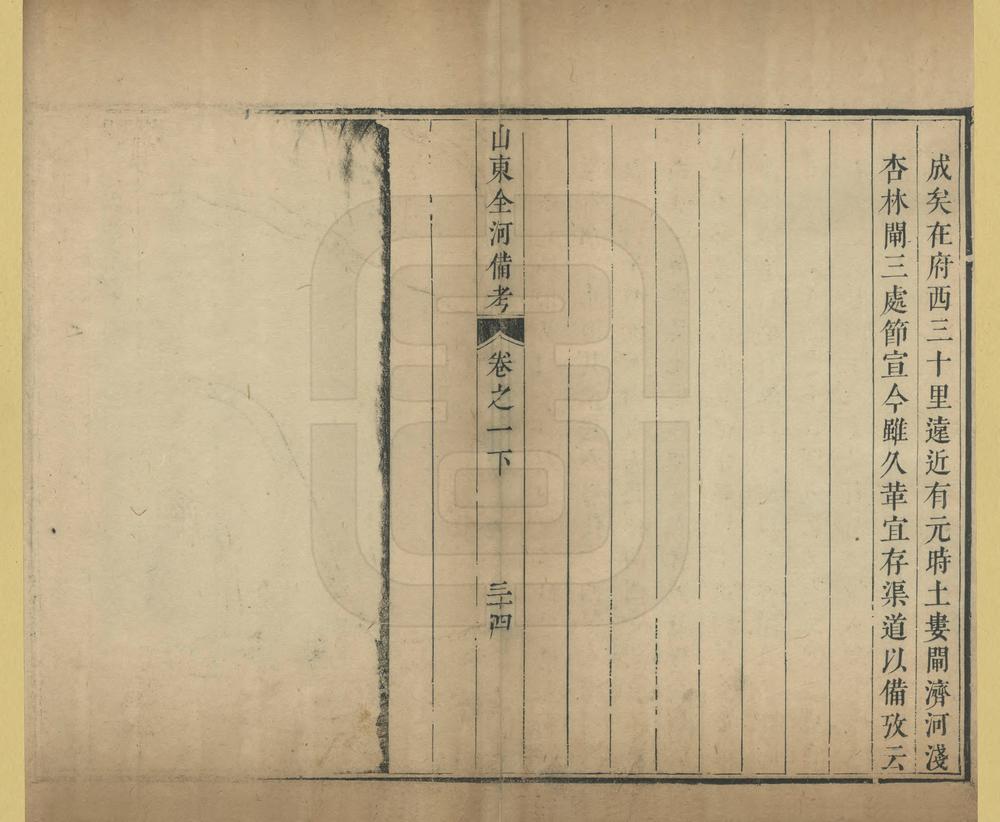 成矣在府西三十里遠近有元時土婁閘濟河淺
杏林閘三處節宣今雖久革宜存渠道以備攷云
山東全河備考
卷之一下
三十四